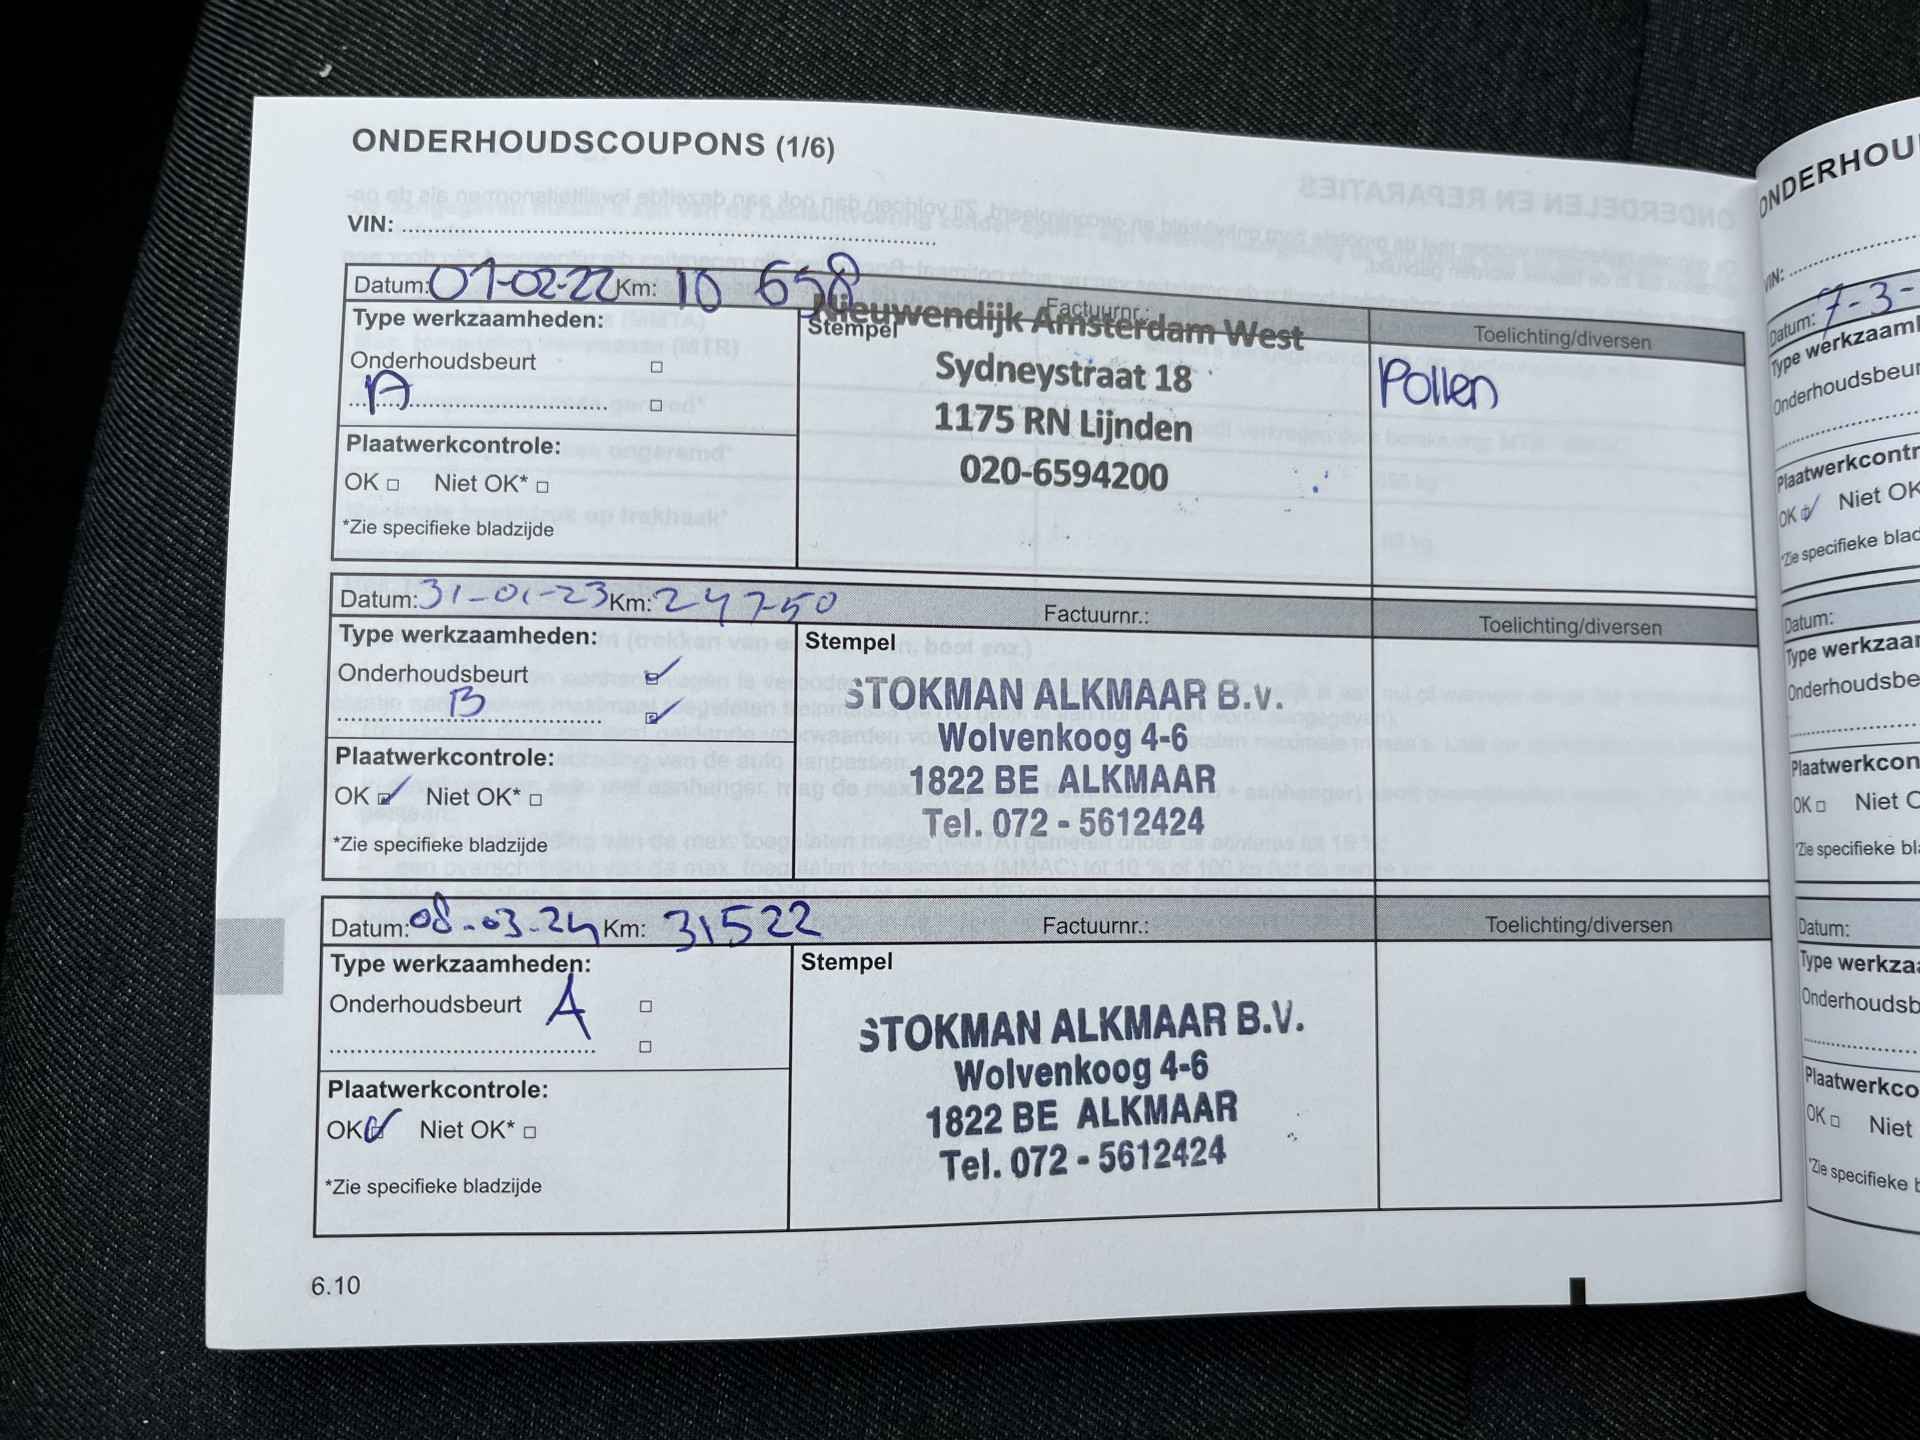 ONDERHOUDSCOUPONS (1/6)
VIN:
Datum: 01-02-22 Km: 10 658 Factuurnr.: Toelichting/diversen
Type werkzaamheden:
Onderhoudsbeurt
A
Plaatwerkcontrole:
OK Niet OK*
*Zie specifieke bladzijde
Stempel
Nieuwendijk Amsterdam West
Sydneystraat 18
1175 RN Lijnden
020-6594200
Pollen
Datum: 31-01-23 Km: 24750 Factuurnr.: Toelichting/diversen
Type werkzaamheden:
Onderhoudsbeurt
B
Plaatwerkcontrole:
OK Niet OK*
*Zie specifieke bladzijde
Stempel
STOKMAN ALKMAAR B.V.
Wolvenkoog 4-6
1822 BE ALKMAAR
Tel. 072 - 5612424
Datum: 08-03-24 Km: 31522 Factuurnr.: Toelichting/diversen
Type werkzaamheden:
Onderhoudsbeurt A
Plaatwerkcontrole:
OK Niet OK*
*Zie specifieke bladzijde
Stempel
STOKMAN ALKMAAR B.V.
Wolvenkoog 4-6
1822 BE ALKMAAR
Tel. 072 - 5612424
6.10
ONDERHOU
VIN:
Datum: 7-3-
Type werkzaamh
Onderhoudsbeur
Plaatwerkcontr
OK Niet OK
*Zie specifieke blad
Datum:
Type werkzaar
Onderhoudsbe
Plaatwerkcon
OK Niet O
*Zie specifieke bl
Datum:
Type werkza
Onderhoudsb
Plaatwerkco
OK Niet
*Zie specifieke b